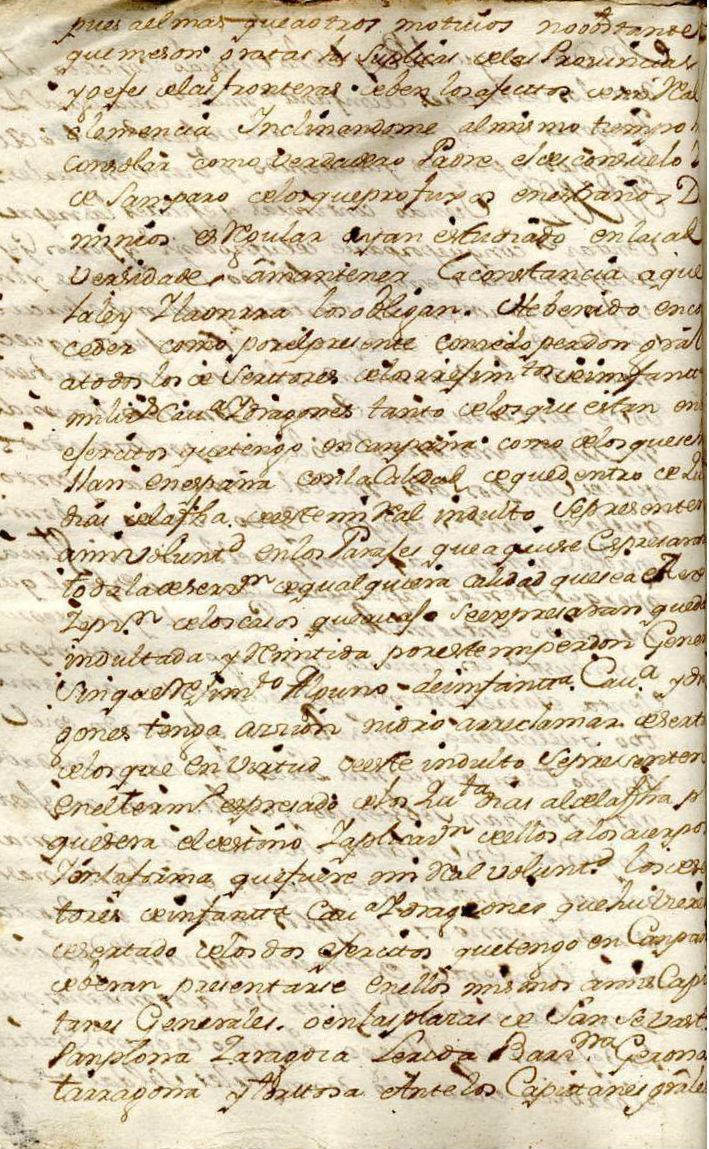 pues a el mas que a otros motivos no obstante
que me son gratas las Suplicas de las Provincias
y Gefes de las fronteras deben los afectos de mi Ral
Clemencia Inclinandome al mismo tiempo
consolar como verdadero Padre el desconsuelo
de Samparo de los que profugos en estraños D
minios es Regular ayan estudiado en las ad
versidades a mantener la constancia a que
la ley Y la onrra los obligan. He benido en co
ceder como por el presente consedo perdon grãl
a todos los de Sertores de los rrefimtos de imfantta
milis Caua Y dragones tanto de los que estan en
efercitos que tengo en canpaña como de los que se
llan en españa con la Calidad de que dentro de Qu
dias de la fha de este mi Ral indulto Se presenten
a mi voluntd en los Parafes que aqui se Espresaran
toda la deserzn de qualquiera calidad que sea
de los casos que aca se expresaran queda
indultada y Rimitida por este mi perdon Gener
Sin que Refimto Alguno de imfantta Caua y dra
gones tenga azsion ni dro a rreclamar deserto
de los que En Virtud de este indulto Se presenten
En el termo espresado de los Quta dias a la fha p
que sera el destino Y aplicazn de ellos a los cuerpos
Y en la forma que fuere mi Ral voluntd los deser
tores de infantta Caua Y dragones que huviere
desertado de los dos efercitos que tengo en Canpaña
deberan presentarse En ellos mismos a mis Capi
tanes Generales. o en las plazas de San Sevast
Panplona Zaragoza Lerida Barzna Gerona
tarragona y tortosa Ante los Capitanes grãles